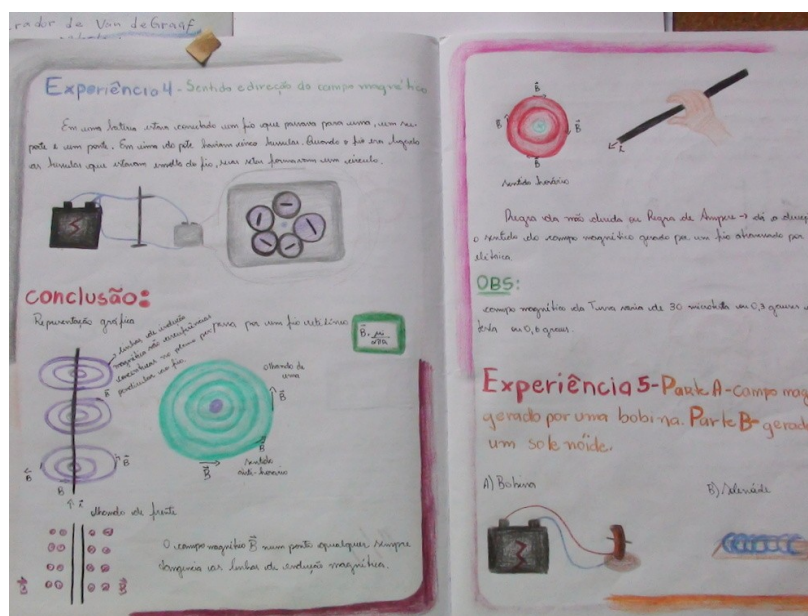 rador de Van de Graaf
Experiência 4 - Sentido e direção do campo magnético
Em uma bateria estava conectado um fio que passava para uma, um su-
porte e um ponte. Em cima do pote haviam cinco bussulas. Quando o fio era ligado
as bussulas que estavam envolta do fio, suas setas formavam um círculo.
Conclusão:
Representação gráfica
linhas de indução
magnética são circunferências
concentricas no plano per-
pendicular ao fio
passa por um fio retilíneo
olhando de
cima
B
B
B
sentido
anti-horário
B
B
B
B
i
olhando de frente
B
B
O campo magnético B num ponto qualquer sempre
tangencia as linhas de indução magnética.
B
B
B
B
sentido horário
i
Regra da mão direita ou Regra de Ampere → dá a
o sentido do campo magnético gerado por um fio atravessado por
elétrica.
OBS:
campo magnético da Terra varia de 30 microtesla ou 0,3 gauss
tesla ou 0,6 gauss.
Experiência 5 - Parte A - campo mag
gerado por uma bobina. Parte B - gerad
um sole nóide.
A) Bobina
B) Solenóide